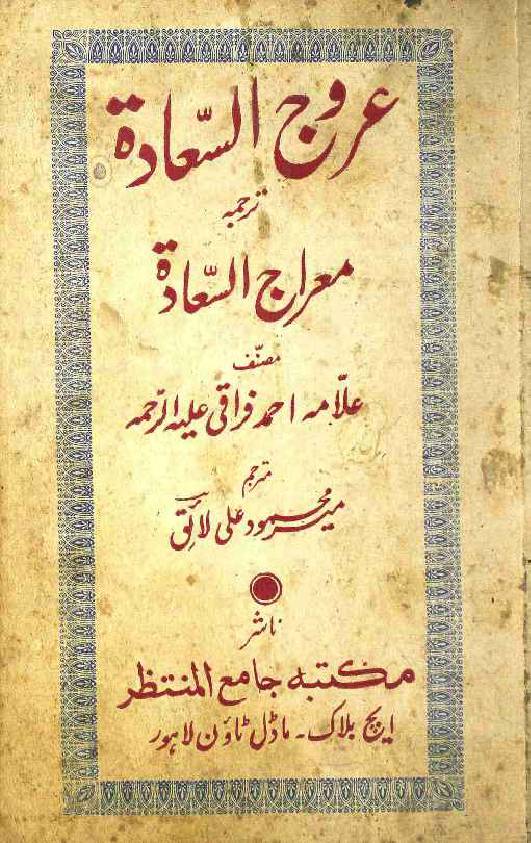 عروج السّعادة
ترجمہ
معراج السّعادة
مصنّف
علّامہ احمد فراقی علیہ الرّحمہ
مترجم
میر محمود علی لائق
ناشر
مکتبہ جامع المنتظر
ایچ بلاک۔ ماڈل ٹاؤن لاہور